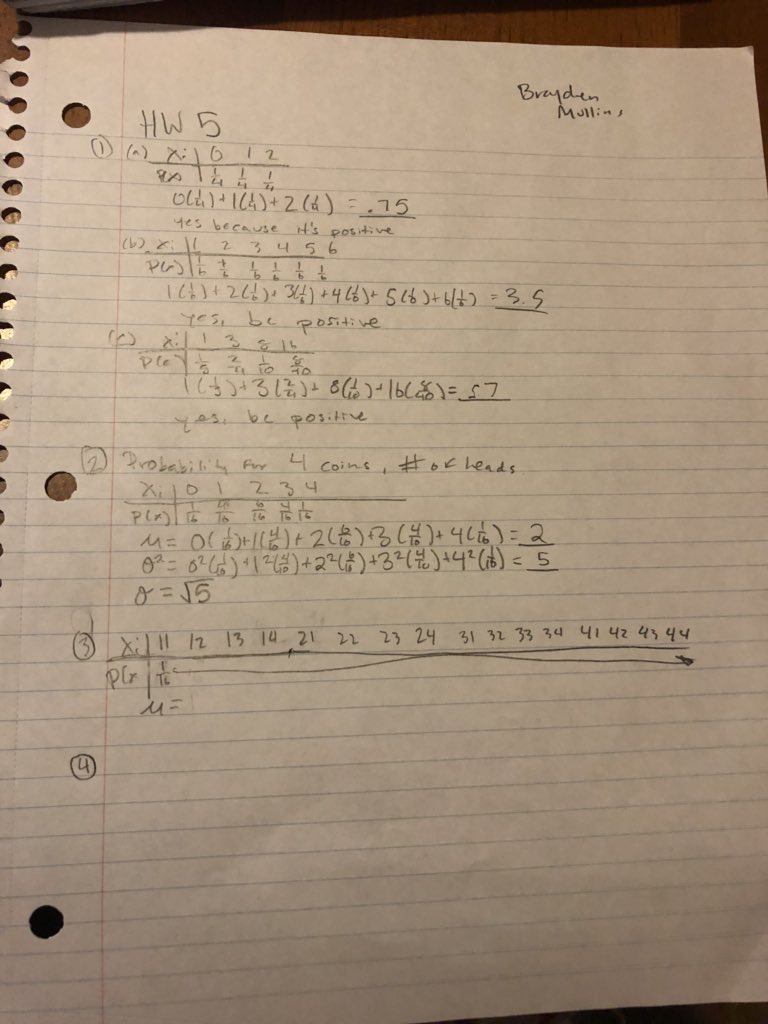 Brayden
Mullins
HW 5
① (a) xi | 0 1 2
P(x) | 1/4 1/4 1/4
0(1/4)+1(1/4)+2(1/4) = .75
yes because it's positive
(b) xi | 1 2 3 4 5 6
P(x) | 1/6 1/6 1/6 1/6 1/6 1/6
1(1/6)+2(1/6)+3(1/6)+4(1/6)+5(1/6)+6(1/6) = 3.5
yes, bc positive
(c) xi | 1 3 8 16
P(x) | 1/5 2/4 1/10 8/40
1(1/5)+3(2/4)+8(1/10)+16(8/40)= 5.7
yes, bc positive
② Probability for 4 coins, # of heads
Xi | 0 1 2 3 4
P(x) | 1/16 4/16 6/16 4/16 1/16
μ= 0(1/16)+1(4/16)+2(6/16)+3(4/16)+4(1/16)= 2
σ²= 0²(1/16)+1²(4/16)+2²(6/16)+3²(4/16)+4²(1/16)= 5
σ = √5
③ Xi | 11 12 13 14 21 22 23 24 31 32 33 34 41 42 43 44
P(x | 1/16
μ=
④